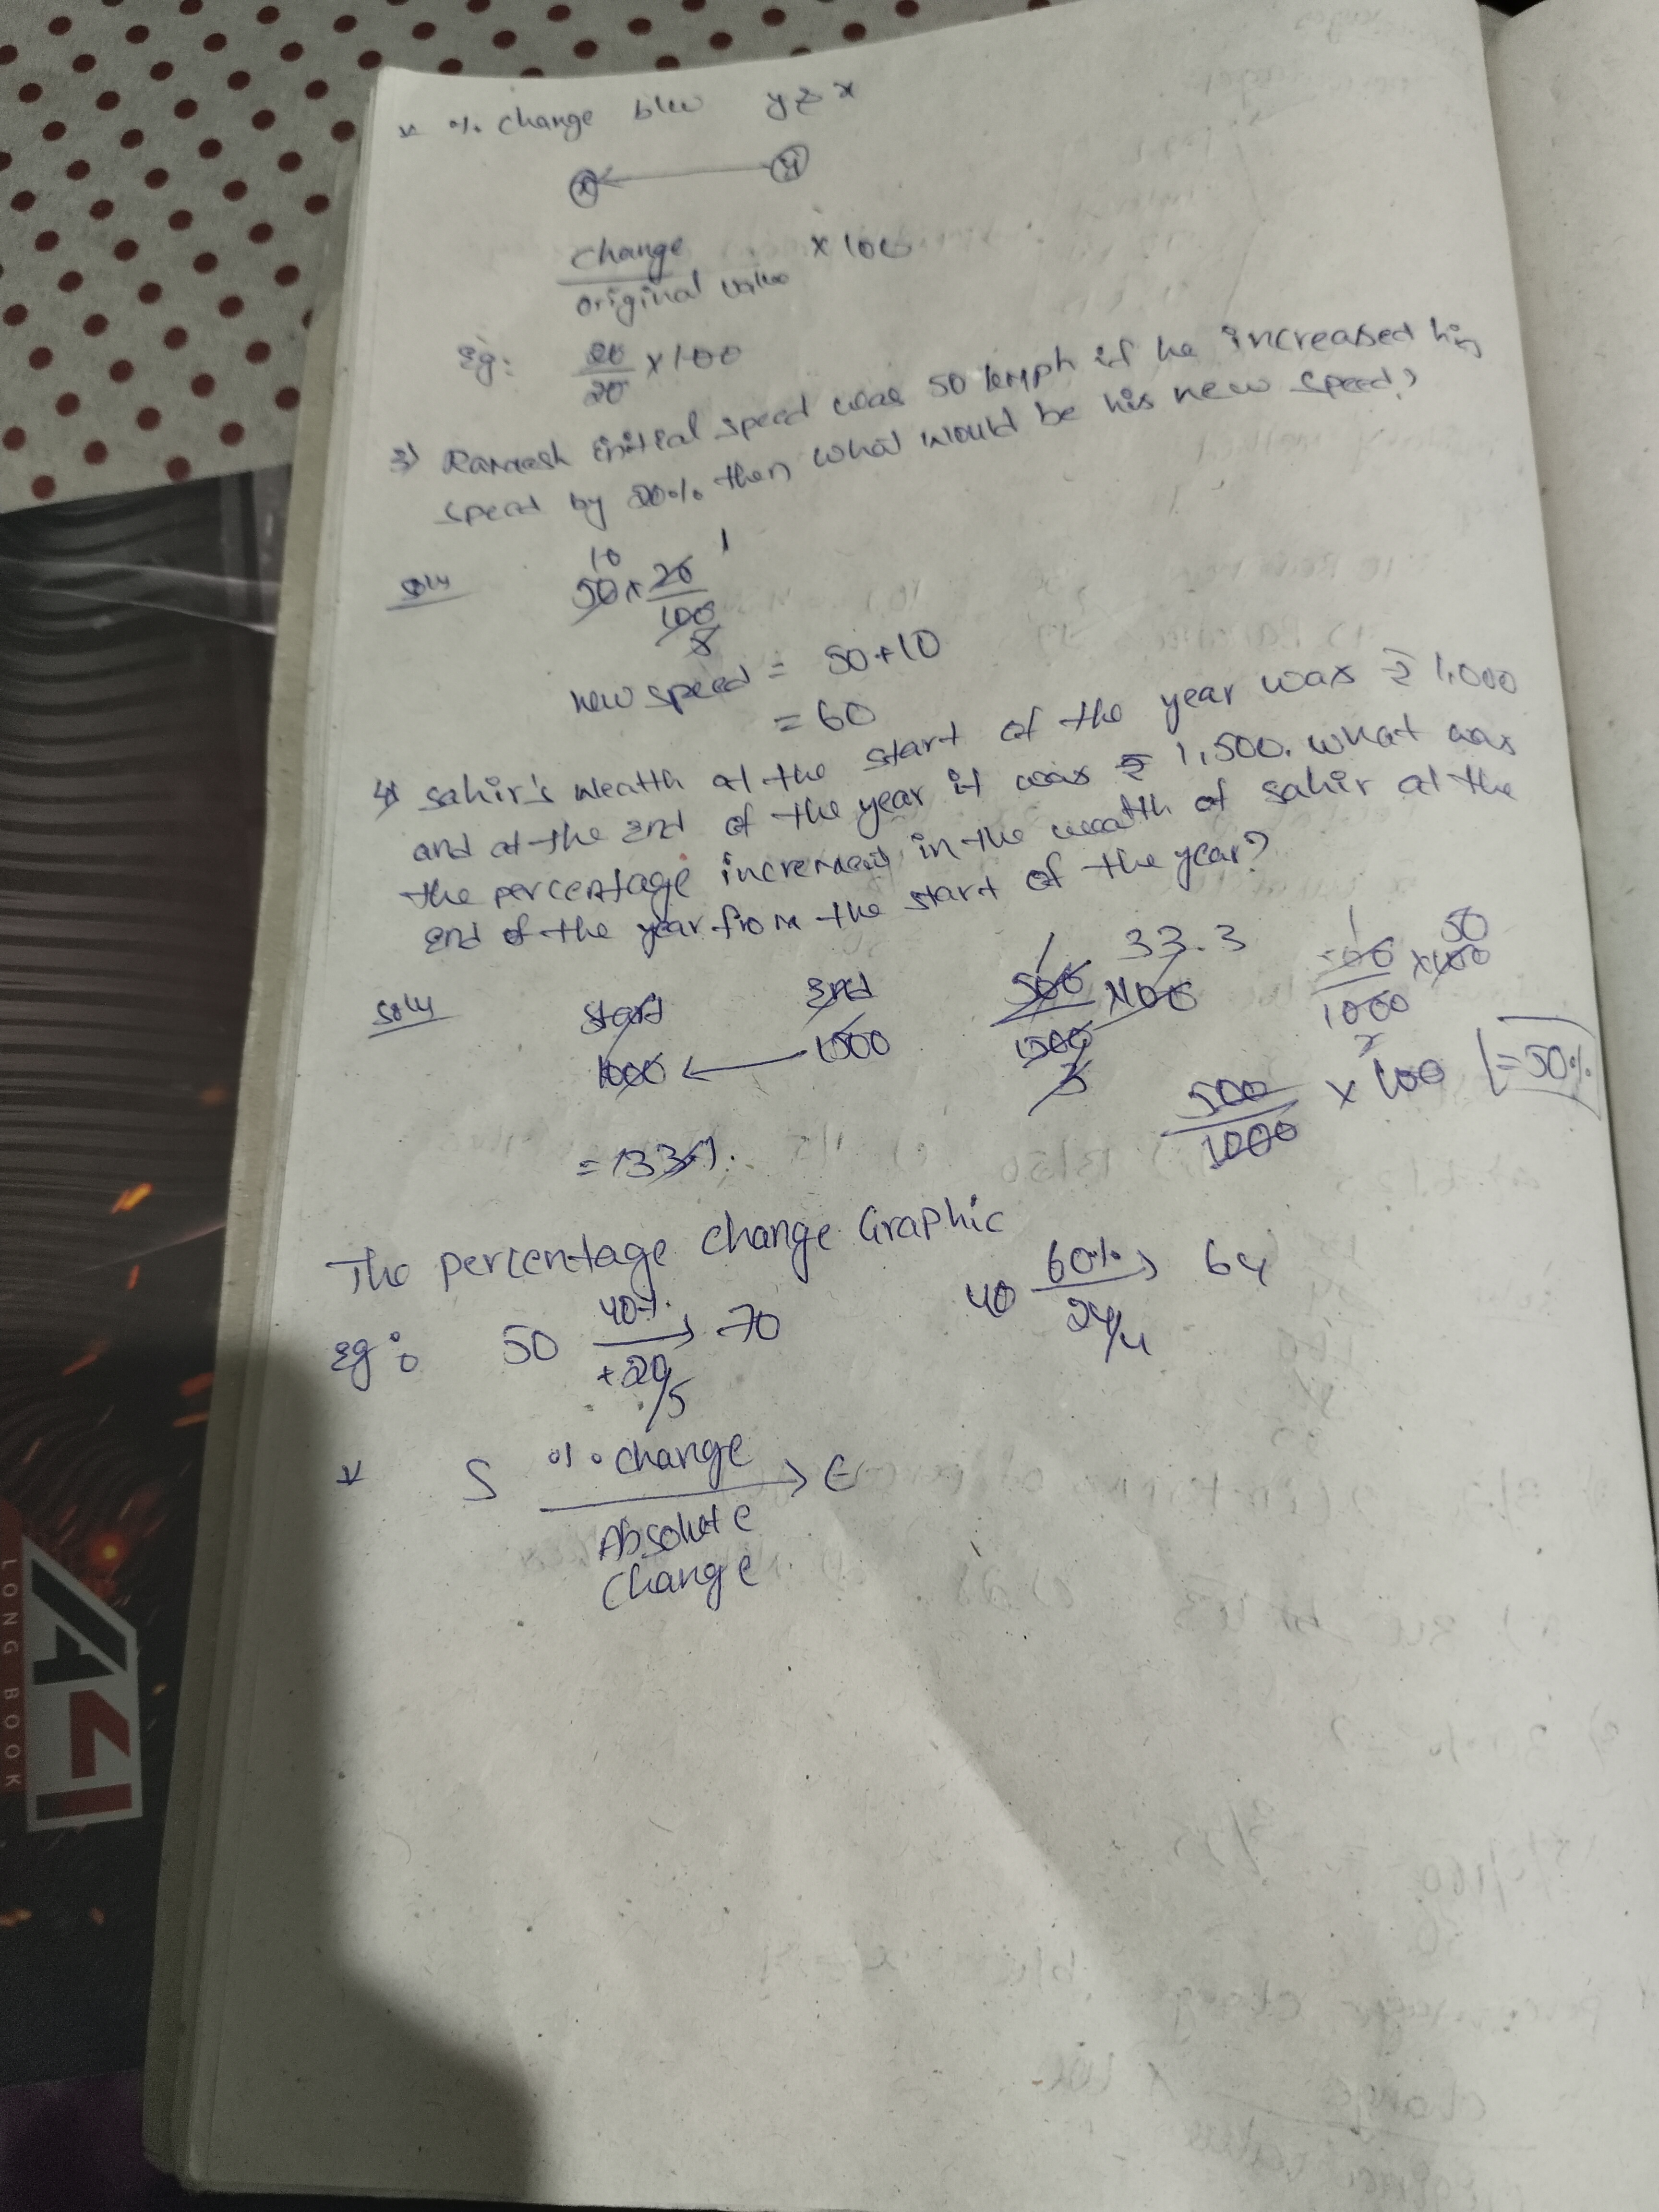 * % change blw y & x
x ← y
change / original value × 100
Eg: 20/20 × 100
3) Ramesh initial speed was 50 kmph if he increased his
speed by 20% then what would be his new speed?
Soln 50 × 20/100
10 1
5
new speed = 50+10
= 60
4) Sahir's wealth at the start of the year was ₹ 1,000
and at the end of the year it was ₹ 1,500. what was
the percentage increment in the wealth of sahir at the
end of the year from the start of the year?
Soln start End
1000 ← 1500
500/1500 × 100 33.3
1 3
500/1000 × 100
1 50
2
500/1000 × 100 = 50%
The percentage change Graphic
Eg: 50 40% → 70
+20/5
40 60% → 64
24/4
* S % change → E
Absolute
change
LONG BOOK